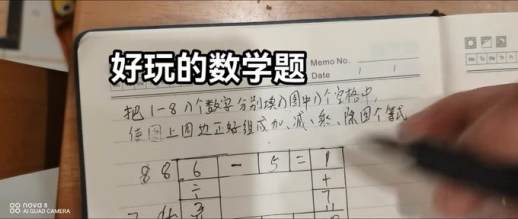 好玩的数学题
Memo No.
Date / /
把1-8八个数字分别填入图中八个空格中,
使图上四边正好组成加、减、乘、除四个等式
88 6 - 5 = 1
÷ +
7
nova 8
AI QUAD CAMERA